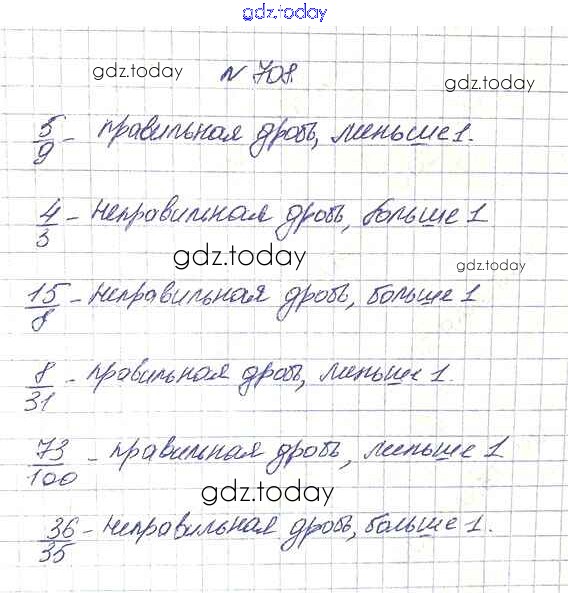 gdz.today
gdz.today № 708. gdz.today
5/9 - правильная дробь, меньше 1.
4/3 - неправильная дробь, больше 1
gdz.today gdz.today
15/8 - неправильная дробь, больше 1
8/31 - правильная дробь, меньше 1.
73/100 - правильная дробь, меньше 1
gdz.today
36/35 - неправильная дробь, больше 1.